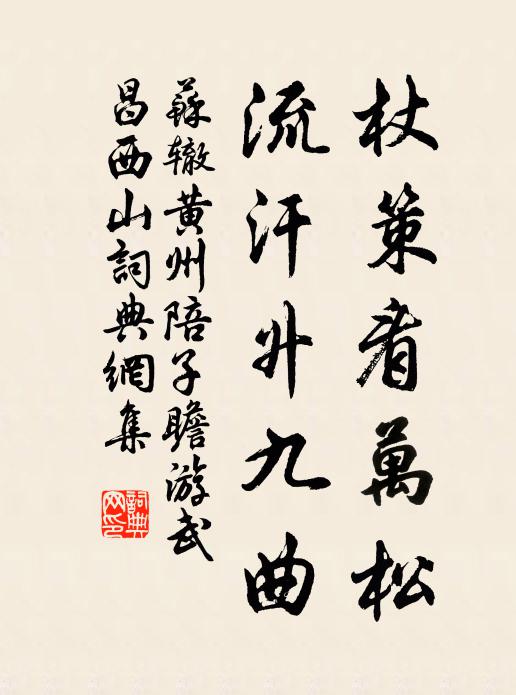 杖策看萬松
流汗升九曲
蘇辙黄州陪子瞻游武
昌西山詞典網集
詞典
网印